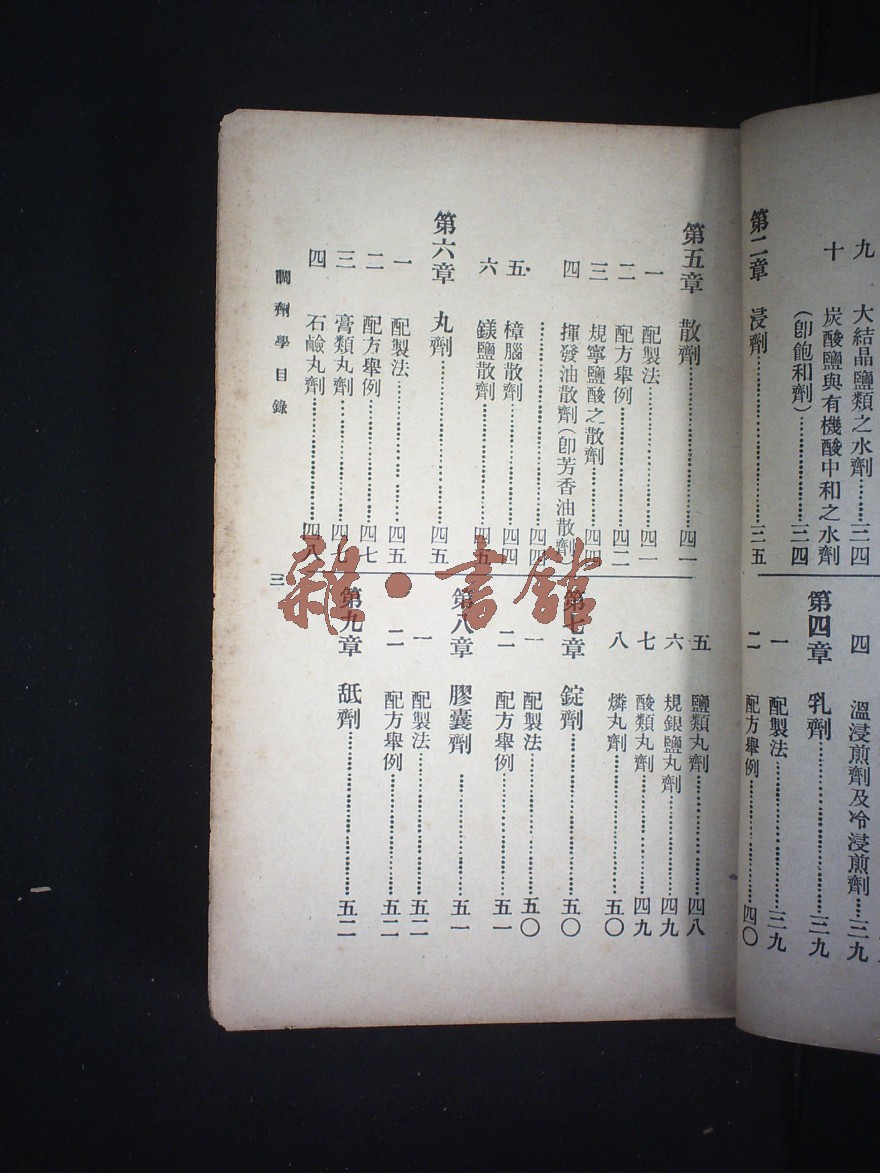 九　大結晶鹽類之水劑……三四
十　炭酸鹽與有機酸中和之水劑
（卽飽和劑）……三四
第二章　浸劑……三五
四　溫浸煎劑及冷浸煎劑……三九
第四章　乳劑……三九
一　配製法……三九
二　配方舉例……四〇
第五章　散劑……四一
一　配製法……四一
二　配方舉例……四二
三　規寧鹽酸之散劑……四四
四　揮發油散劑（卽芳香油散劑）
……四四
五　樟腦散劑……四四
六　鎂鹽散劑……四五
第六章　丸劑……四五
一　配製法……四五
二　配方舉例……四七
三　膏類丸劑……四七
四　石鹼丸劑……四八
五　鹽類丸劑……四八
六　規銀鹽丸劑……四九
七　酸類丸劑……四九
八　燐丸劑……五〇
第七章　錠劑……五〇
一　配製法……五〇
二　配方舉例……五一
第八章　膠囊劑……五一
一　配製法……五二
二　配方舉例……五二
第九章　舐劑……五二
調劑學目錄
三
雜·書館